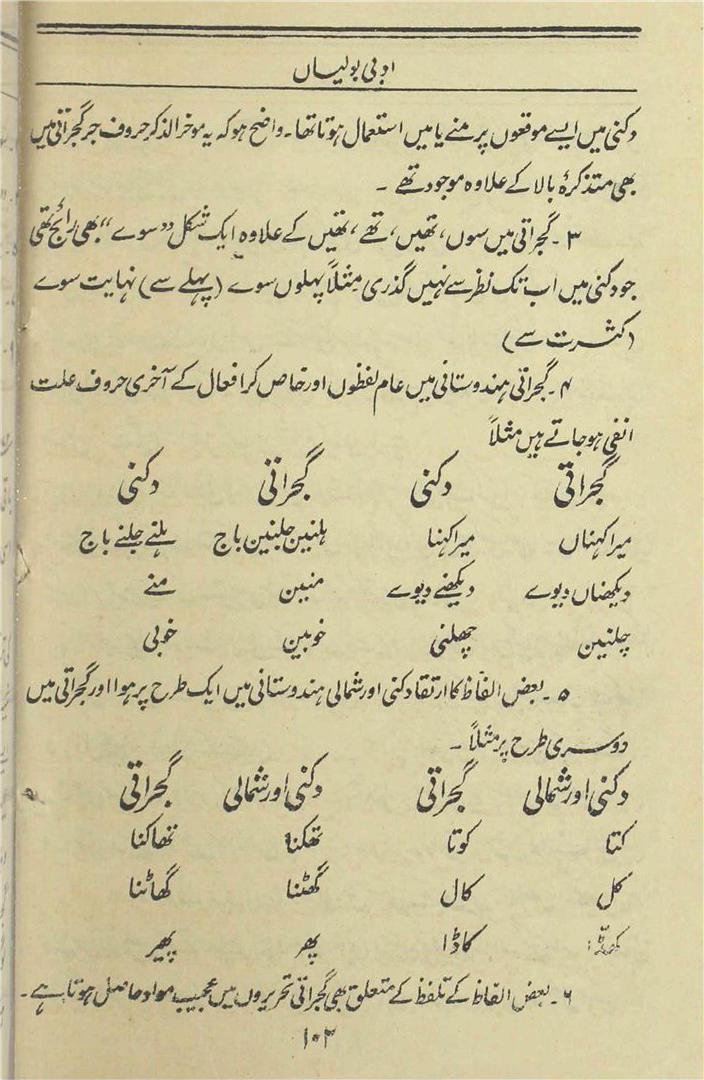 ادبی بولیاں
دکنی میں ایسے موقعوں پر منے یا میں استعمال ہوتا تھا۔ واضح ہو کہ یہ موخر الذکر حروف جر گجراتی میں
بھی متذکرۂ بالا کے علاوہ موجود تھے ۔
۳۔ گجراتی میں سوں، تھیں، تھے، تھیں کے علاوہ ایک شکل "سوے" بھی رائج تھی
جو دکنی میں اب تک نظر سے نہیں گذری مثلاً پہلوں سوے (پہلے سے) نہایت سوے
(کثرت سے)
۴۔ گجراتی ہندوستانی میں عام لفظوں اور خاص کر افعال کے آخری حروف علت
انفی ہو جاتے ہیں مثلاً
گجراتی دکنی گجراتی دکنی
میرا کہناں میرا کہنا ہلنین جلنین باج ہلنے جلنے باج
دیکھناں دیوے دیکھنے دیوے منین منے
چلنین چھلنی خوبین خوبی
۵۔ بعض الفاظ کا ارتقا دکنی اور شمالی ہندوستانی میں ایک طرح پر ہوا اور گجراتی میں
دوسری طرح پر مثلاً ۔
دکنی اور شمالی گجراتی دکنی اور شمالی گجراتی
کتا کوتا تھکنا تھاکنا
کل کال گھٹنا گھاٹنا
کاڈا پھر پھیر
۶۔ بعض الفاظ کے تلفظ کے متعلق بھی گجراتی تحریروں میں عجیب مواد حاصل ہوتا ہے۔
۱۰۳